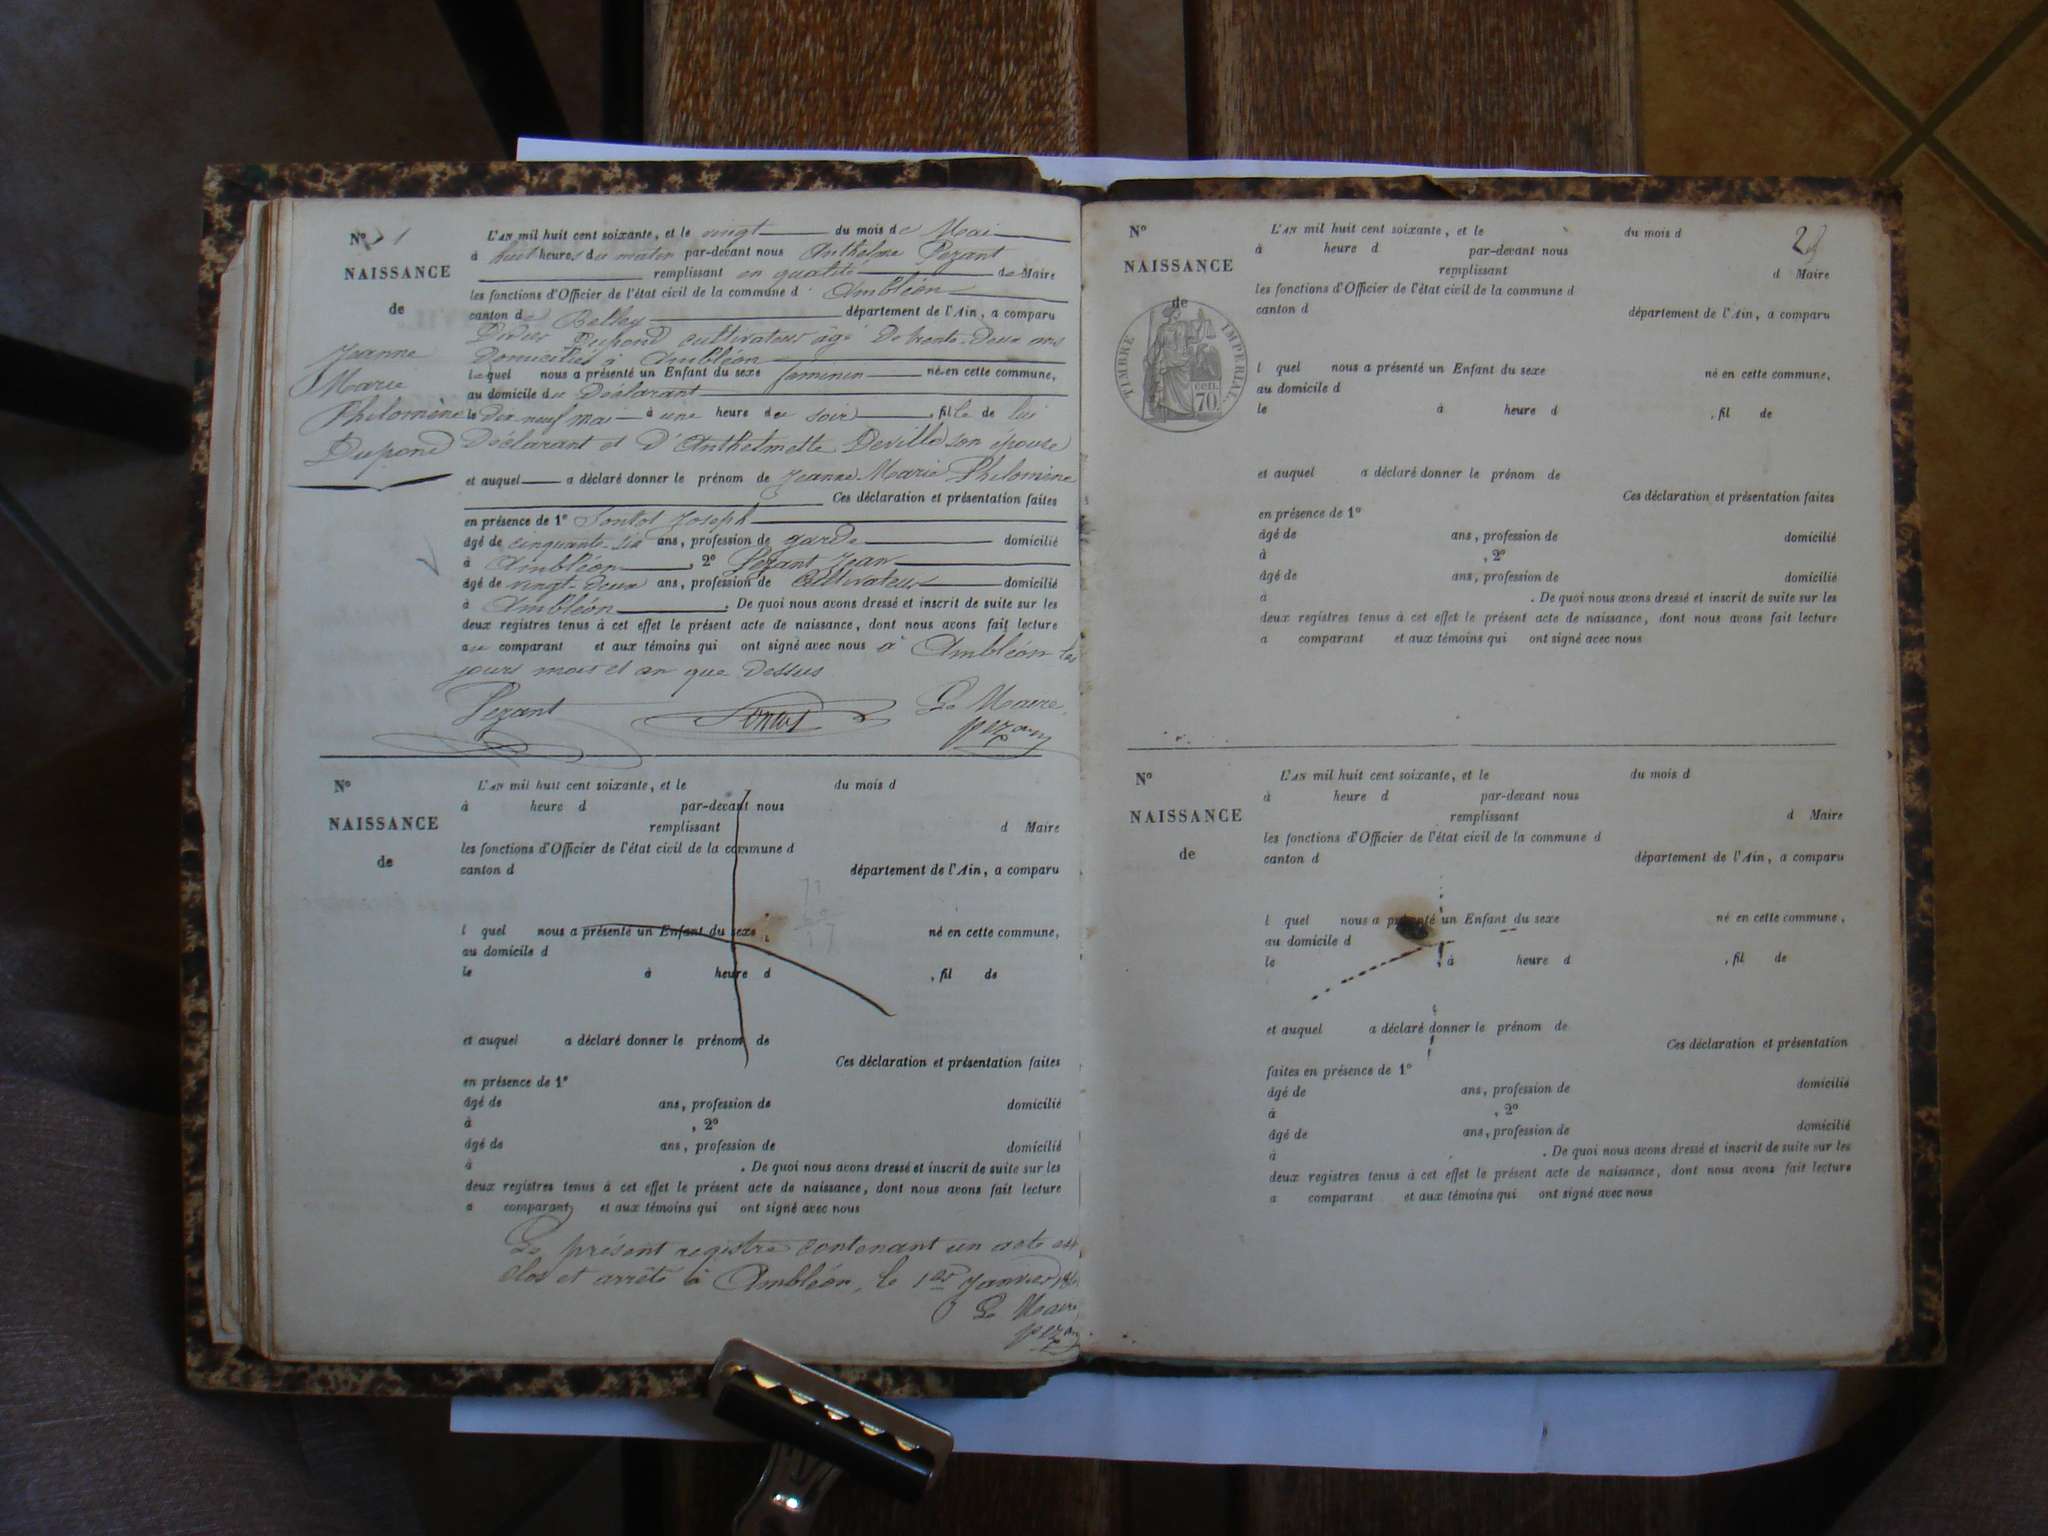 N° 1
NAISSANCE
de
Jeanne
Marie
Philomène
Dupond
L'AN mil huit cent soixante, et le vingt du mois de Mai
à huit heures du matin par-devant nous Anthelme Pezant
remplissant en qualité de Maire
les fonctions d'Officier de l'état civil de la commune d'Ambléon
canton de Belley département de l'Ain, a comparu
Didier Dupond cultivateur âgé de trente-deux ans
domicilié à Ambléon
lequel nous a présenté un Enfant du sexe féminin né en cette commune,
au domicile du Déclarant
le dix neuf mai à une heure du soir, fille de lui
Déclarant et d'Anthelmette Deville son épouse
et auquel a déclaré donner le prénom de Jeanne Marie Philomène
Ces déclaration et présentation faites
en présence de 1° Joseph
âgé de cinquante-six ans, profession de garde domicilié
à Ambléon, 2° Pezant Jean
âgé de vingt-deux ans, profession de Cultivateur domicilié
à Ambléon. De quoi nous avons dressé et inscrit de suite sur les
deux registres tenus à cet effet le présent acte de naissance, dont nous avons fait lecture
au comparant et aux témoins qui ont signé avec nous à Ambléon les
jours mois et an que dessus
Pezant Le Maire
pezant
N°
NAISSANCE
de
L'AN mil huit cent soixante, et le du mois d
à heure d par-devant nous
remplissant d Maire
les fonctions d'Officier de l'état civil de la commune d
canton d département de l'Ain, a comparu
l quel nous a présenté un Enfant du sexe né en cette commune,
au domicile d
le à heure d , fil de
et auquel a déclaré donner le prénom de
Ces déclaration et présentation faites
en présence de 1°
âgé de ans, profession de domicilié
à , 2°
âgé de ans, profession de domicilié
à . De quoi nous avons dressé et inscrit de suite sur les
deux registres tenus à cet effet le présent acte de naissance, dont nous avons fait lecture
a comparant et aux témoins qui ont signé avec nous
Le présent registre contenant un acte est
clos et arrêté à Ambléon, le 1er Janvier
Le Maire
N°
NAISSANCE
de
TIMBRE IMPERIAL
70 cen.
L'AN mil huit cent soixante, et le du mois d
à heure d par-devant nous
remplissant d Maire
les fonctions d'Officier de l'état civil de la commune d
canton d département de l'Ain, a comparu
l quel nous a présenté un Enfant du sexe né en cette commune,
au domicile d
le à heure d , fil de
et auquel a déclaré donner le prénom de
Ces déclaration et présentation faites
en présence de 1°
âgé de ans, profession de domicilié
à , 2°
âgé de ans, profession de domicilié
à . De quoi nous avons dressé et inscrit de suite sur les
deux registres tenus à cet effet le présent acte de naissance, dont nous avons fait lecture
a comparant et aux témoins qui ont signé avec nous
N°
NAISSANCE
de
L'AN mil huit cent soixante, et le du mois d
à heure d par-devant nous
remplissant d Maire
les fonctions d'Officier de l'état civil de la commune d
canton d département de l'Ain, a comparu
l quel nous a présenté un Enfant du sexe né en cette commune,
au domicile d
le , à heure d , fil de
et auquel a déclaré donner le prénom de
Ces déclaration et présentation
faites en présence de 1°
âgé de ans, profession de domicilié
à , 2°
âgé de ans, profession de domicilié
à . De quoi nous avons dressé et inscrit de suite sur les
deux registres tenus à cet effet le présent acte de naissance, dont nous avons fait lecture
a comparant et aux témoins qui ont signé avec nous